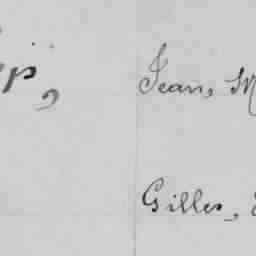 Jean, M
Gilles,